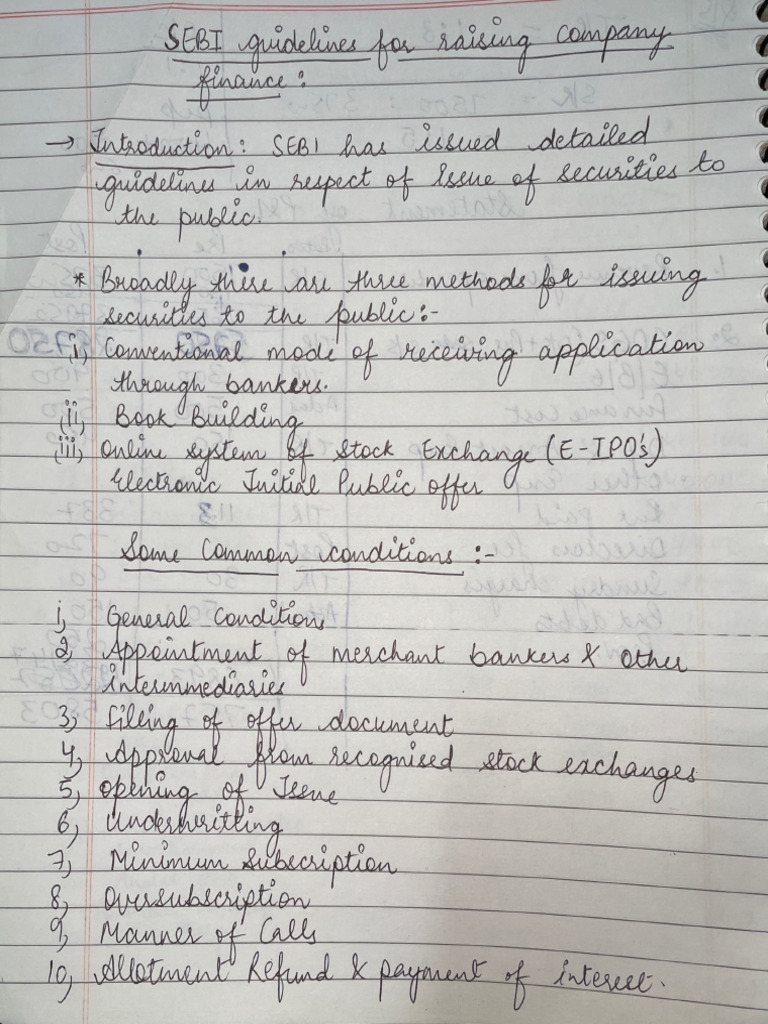 SEBI guidelines for raising company
finance :
→ Introduction : SEBI has issued detailed
guidelines in respect of Issue of securities to
the public.
* Broadly there are three methods for issuing
securities to the public :-
i) Conventional mode of receiving application
through bankers.
(ii) Book Building
(iii) Online system of Stock Exchange (E-IPO's)
Electronic Initial Public offer
Some Common conditions :-
1) General Conditions
2) Appointment of merchant bankers & other
intermmediaries
3) filling of offer document
4) Approval from recognised stock exchanges
5) opening of Issue
6) Underwritting
7) Minimum subscription
8) Oversubscription
9) Manner of Calls
10) Allotment Refund & payment of interest.